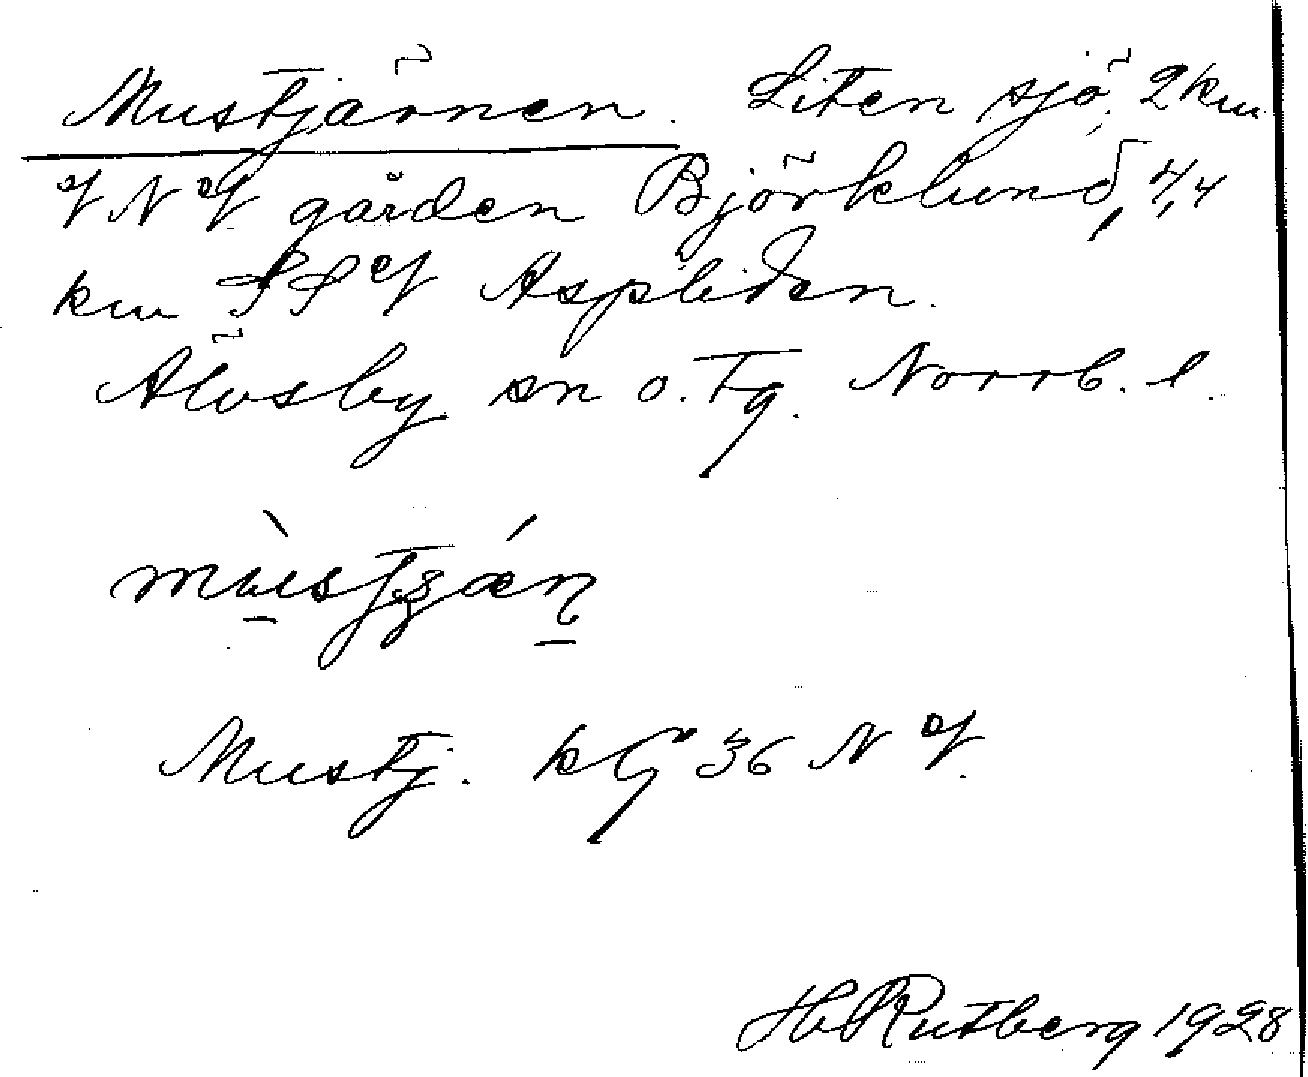 Mustjärnen. Liten sjö, 2 km
V N V gården Björklund, 4,4
km S S V Aspliden.
Älvsby sn o. Tg. Norrb. l.
Mustj. k G 36 N V.
H Rutberg 1928